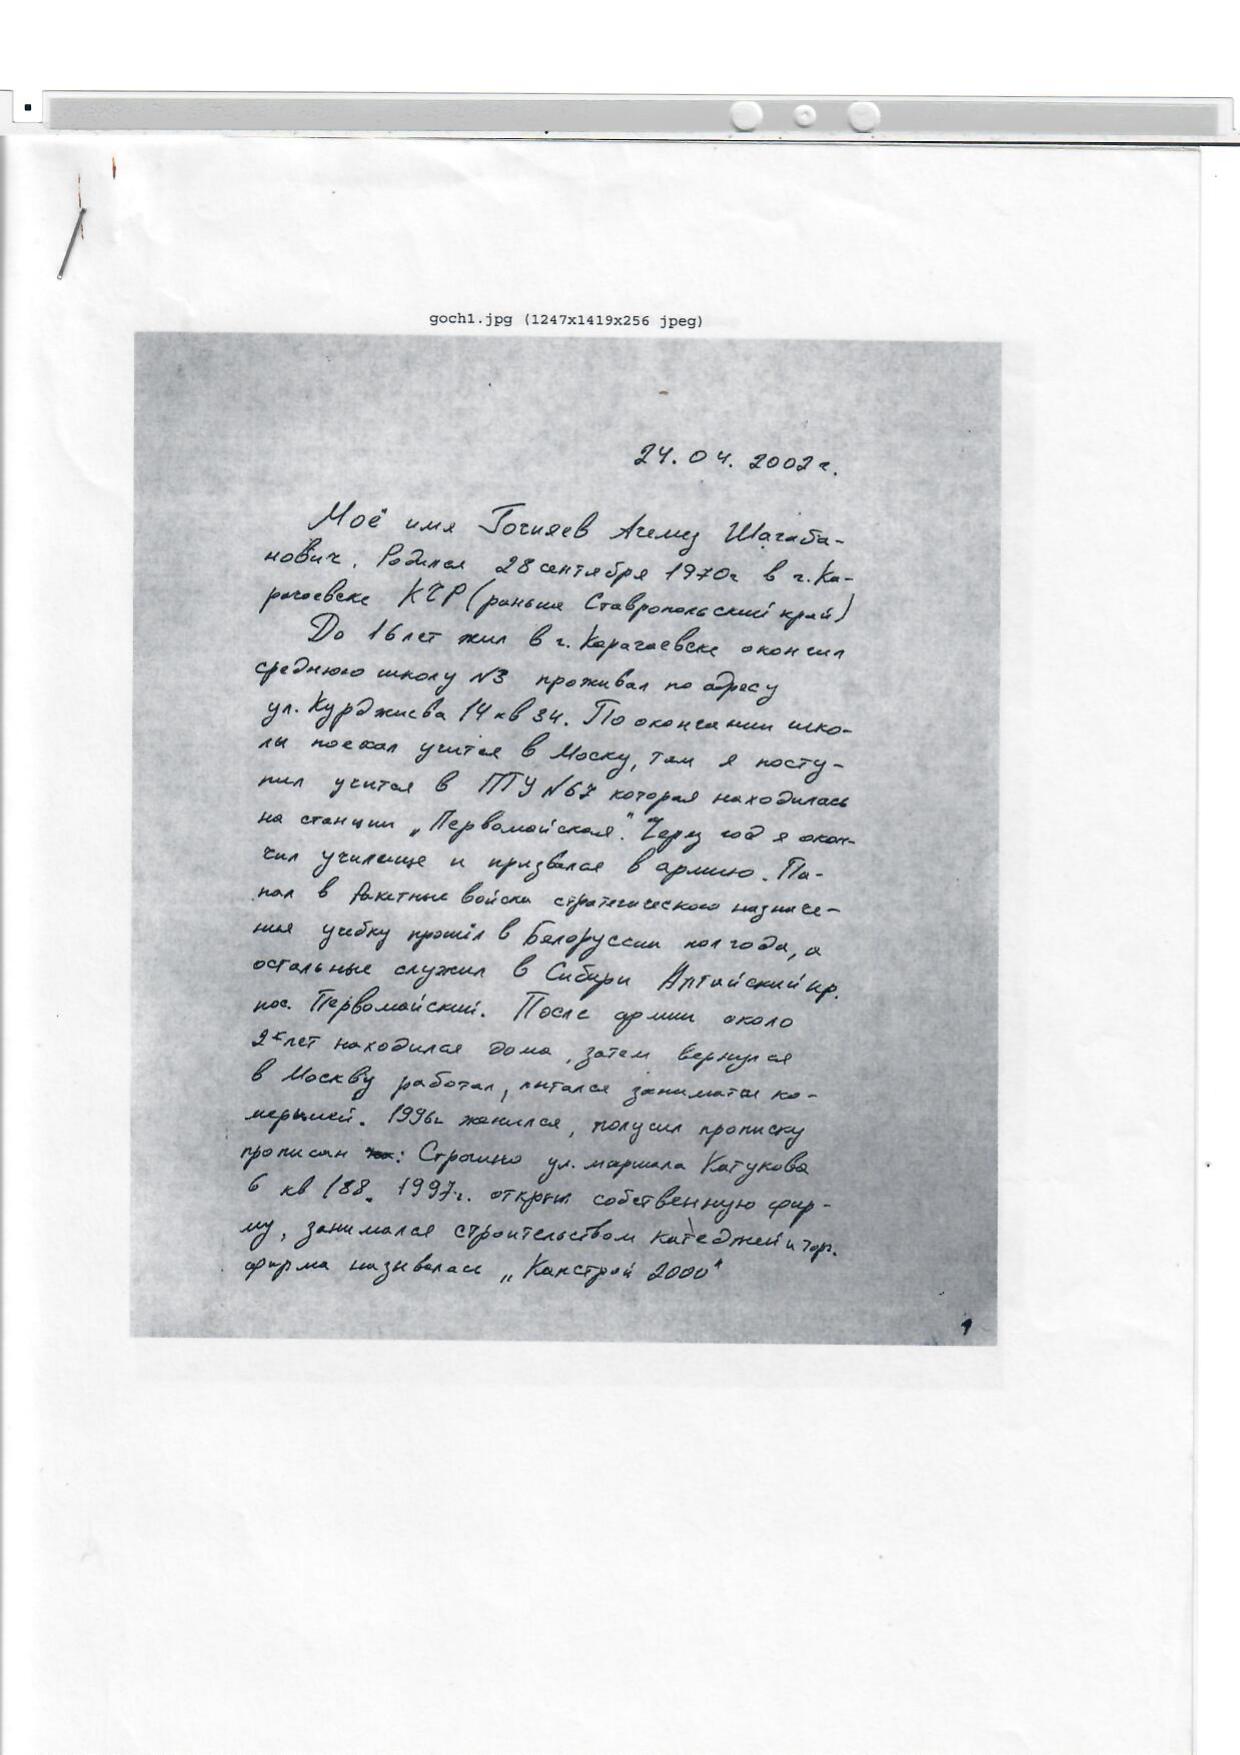 goch1.jpg (1247x1419x256 jpeg)
24.04.2002г.
Моё имя Гочияев Ачемез Шагаба-
нович. Родился 28 сентября 1970г в г. Ка-
рачаевске КЧР (раньше Ставропольский край)
До 16 лет жил в г. Карачаевске окончил
среднюю школу №3 проживал по адресу
ул. Курджиева 14 кв 34. По окончании шко-
лы поехал учится в Моску, там я посту-
пил учится в ПТУ №67 которая находилась
на станции „Первомайская". Через год я окон-
чил училище и призвался в армию. По-
пал в Ракетные войска стратегического назначе-
ния учебку прошёл в Белоруссии пол года, а
остальные служил в Сибири Алтайский кр.
пос. Первомайский. После армии около
2х лет находился дома, затем вернулся
в Москву работал, питался заниматся ко-
мерцией. 1996г женился, получил прописку
прописан : Строгино ул. маршала Катукова
6 кв 188. 1997г. открыл собственную фир-
му, занимался строительством катеджей и торг.
фирма называлась „Капстрой 2000"
1